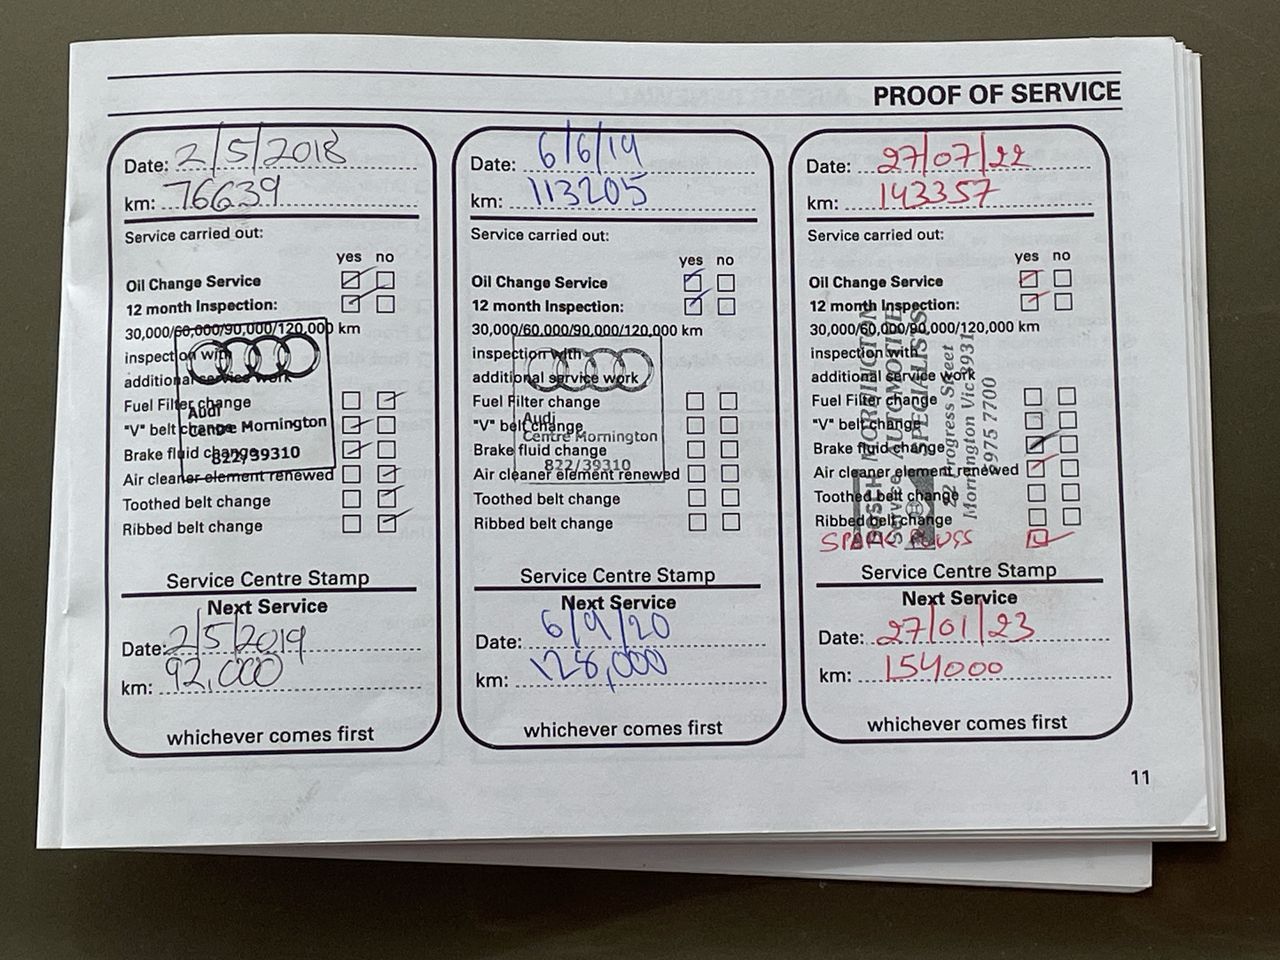 PROOF OF SERVICE
Date: 2/5/2018
km: 76639
Service carried out:
yes no
Oil Change Service
12 month Inspection:
30,000/60,000/90,000/120,000 km
inspection with
additional service work
Fuel Filter change
"V" belt change
Brake fluid change
Air cleaner element renewed
Toothed belt change
Ribbed belt change
Audi
Centre Mornington
822/39310
Service Centre Stamp
Next Service
Date: 2/5/2019
km: 92,000
whichever comes first
Date: 6/6/19
km: 113205
Service carried out:
yes no
Oil Change Service
12 month Inspection:
30,000/60,000/90,000/120,000 km
inspection with
additional service work
Fuel Filter change
"V" belt change
Brake fluid change
Air cleaner element renewed
Toothed belt change
Ribbed belt change
Audi
Centre Mornington
822/39310
Service Centre Stamp
Next Service
Date: 6/9/20
km: 128,000
whichever comes first
Date: 27/07/22
km: 143357
Service carried out:
yes no
Oil Change Service
12 month Inspection:
30,000/60,000/90,000/120,000 km
inspection with
additional service work
Fuel Filter change
"V" belt change
Brake fluid change
Air cleaner element renewed
Toothed belt change
Ribbed belt change
SPARK PLUGS
BOSCH
Service
MORNINGTON
AUTOMOTIVE
SPECIALISTS
22 Progress Street
Mornington Vic 3931
5975 7700
Service Centre Stamp
Next Service
Date: 27/01/23
km: 154000
whichever comes first
11